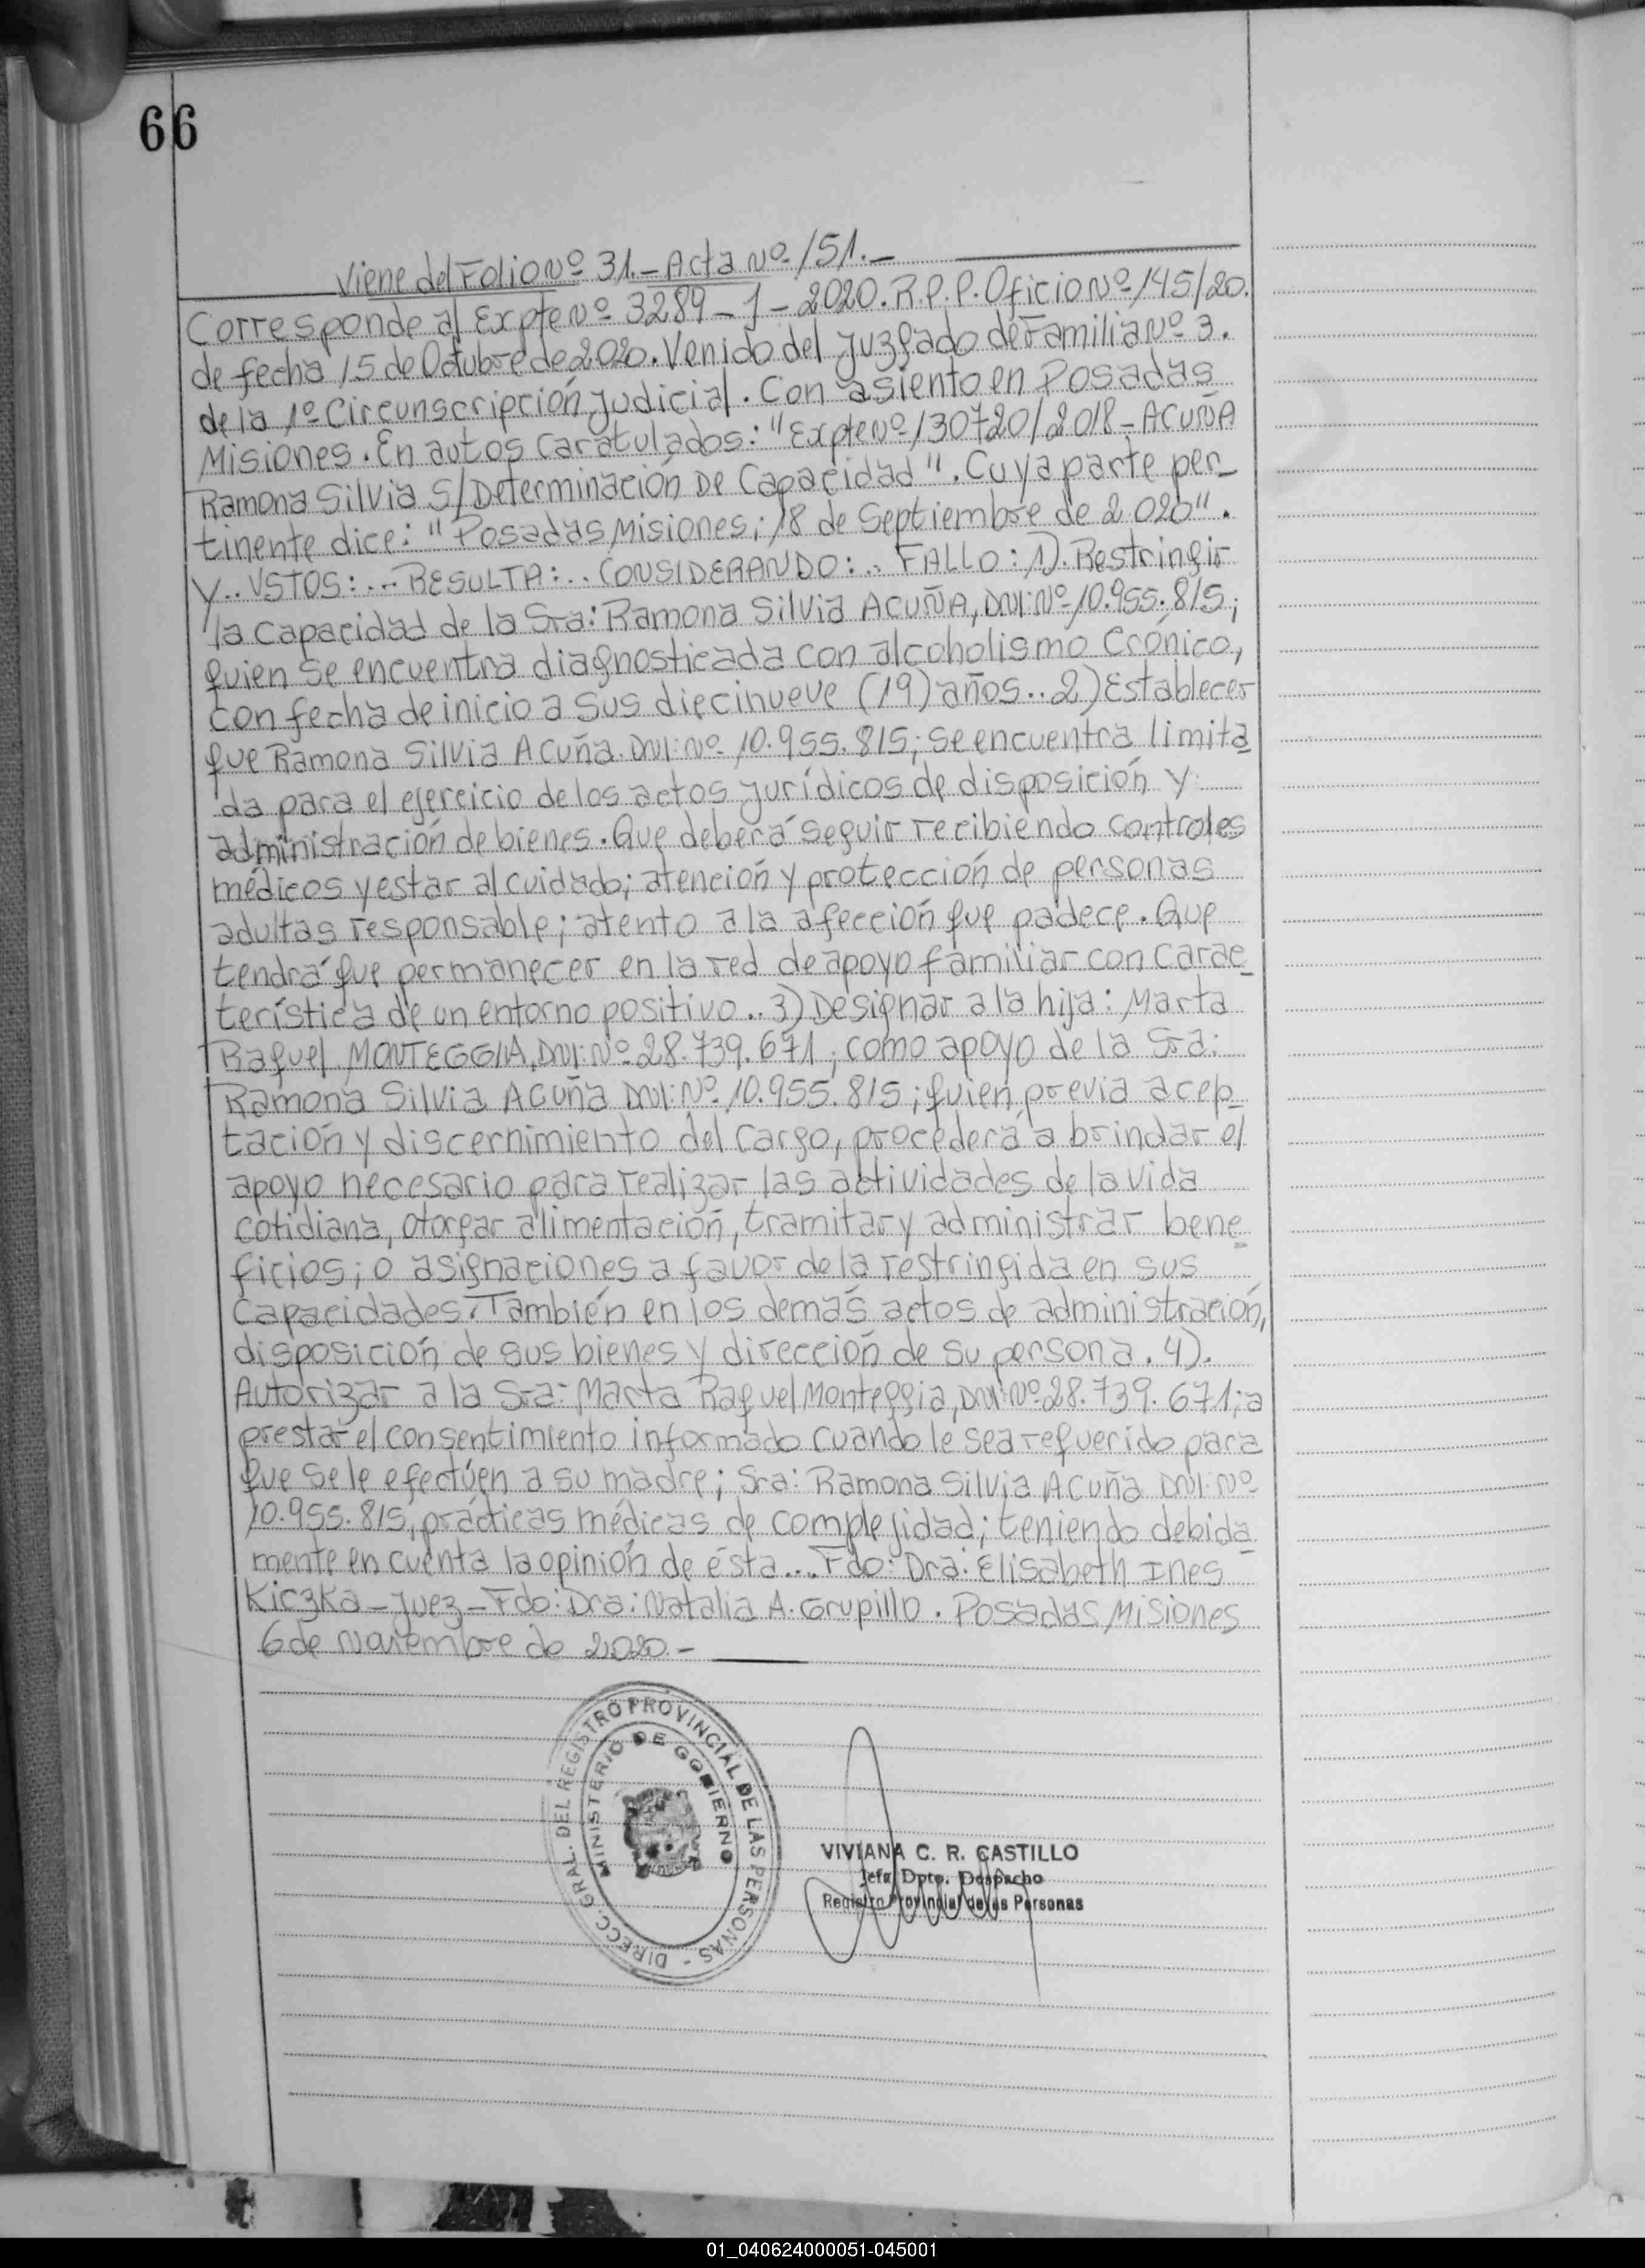 66
Viene del Folio Nº 31.- Acta Nº 151.-
Corresponde al Expte Nº 3289-J-2020. R.P.P. Oficio Nº 145/20.
de fecha 15 de Octubre de 2020. Venido del Juzgado de Familia Nº 3.
de la 1º Circunscripción Judicial. Con asiento en Posadas
Misiones. En autos caratulados: "Expte Nº 130720/2018 - ACUÑA
Ramona Silvia S/Determinación De Capacidad". Cuya parte per-
tinente dice: "Posadas, Misiones; 18 de Septiembre de 2020".
Y.. VSTOS: ... RESULTA: .. CONSIDERANDO: .. FALLO: 1). Restringir
la Capacidad de la Sra: Ramona Silvia ACUÑA, DNI: Nº 10.955.815;
quien se encuentra diagnosticada con alcoholismo Crónico,
con fecha de inicio a sus diecinueve (19) años.. 2) Establecer
que Ramona Silvia Acuña. DNI: Nº 10.955.815; se encuentra limita
da para el ejercicio de los actos jurídicos de disposición y
administración de bienes. Que deberá seguir recibiendo controles
médicos y estar al cuidado; atención y protección de personas
adultas responsable; atento a la afección que padece. Que
tendrá que permanecer en la red de apoyo familiar con Carac-
terística de un entorno positivo.. 3) Designar a la hija: Marta
Raquel MONTEGGIA, DNI: Nº 28.739.671; como apoyo de la Sra:
Ramona Silvia Acuña DNI: Nº 10.955.815; quien, previa acep-
tación y discernimiento del cargo, procederá a brindar el
apoyo necesario para realizar las actividades de la vida
cotidiana, otorgar alimentación, tramitar y administrar bene
ficios; o asignaciones a favor de la restringida en sus
Capacidades. También en los demás actos de administración,
disposición de sus bienes y dirección de su persona. 4).
Autorizar a la Sra: Marta Raquel Monteggia, DNI: Nº 28.739.671; a
prestar el consentimiento informado cuando le sea requerido para
que se le efectúen a su madre; Sra: Ramona Silvia Acuña DNI: Nº
10.955.815, prácticas médicas de complejidad; teniendo debida
mente en cuenta la opinión de ésta... Fdo: Dra: Elisabeth Ines
Kiczka - Juez - Fdo: Dra: Natalia A. Grupillo. Posadas, Misiones
6 de Noviembre de 2020.-
DIRECC. GRAL. DEL REGISTRO PROVINCIAL DE LAS PERSONAS -
MINISTERIO DE GOBIERNO
VIVIANA C. R. CASTILLO
Jefa Dpto. Despacho
Registro Provincial de las Personas
01_040624000051-045001